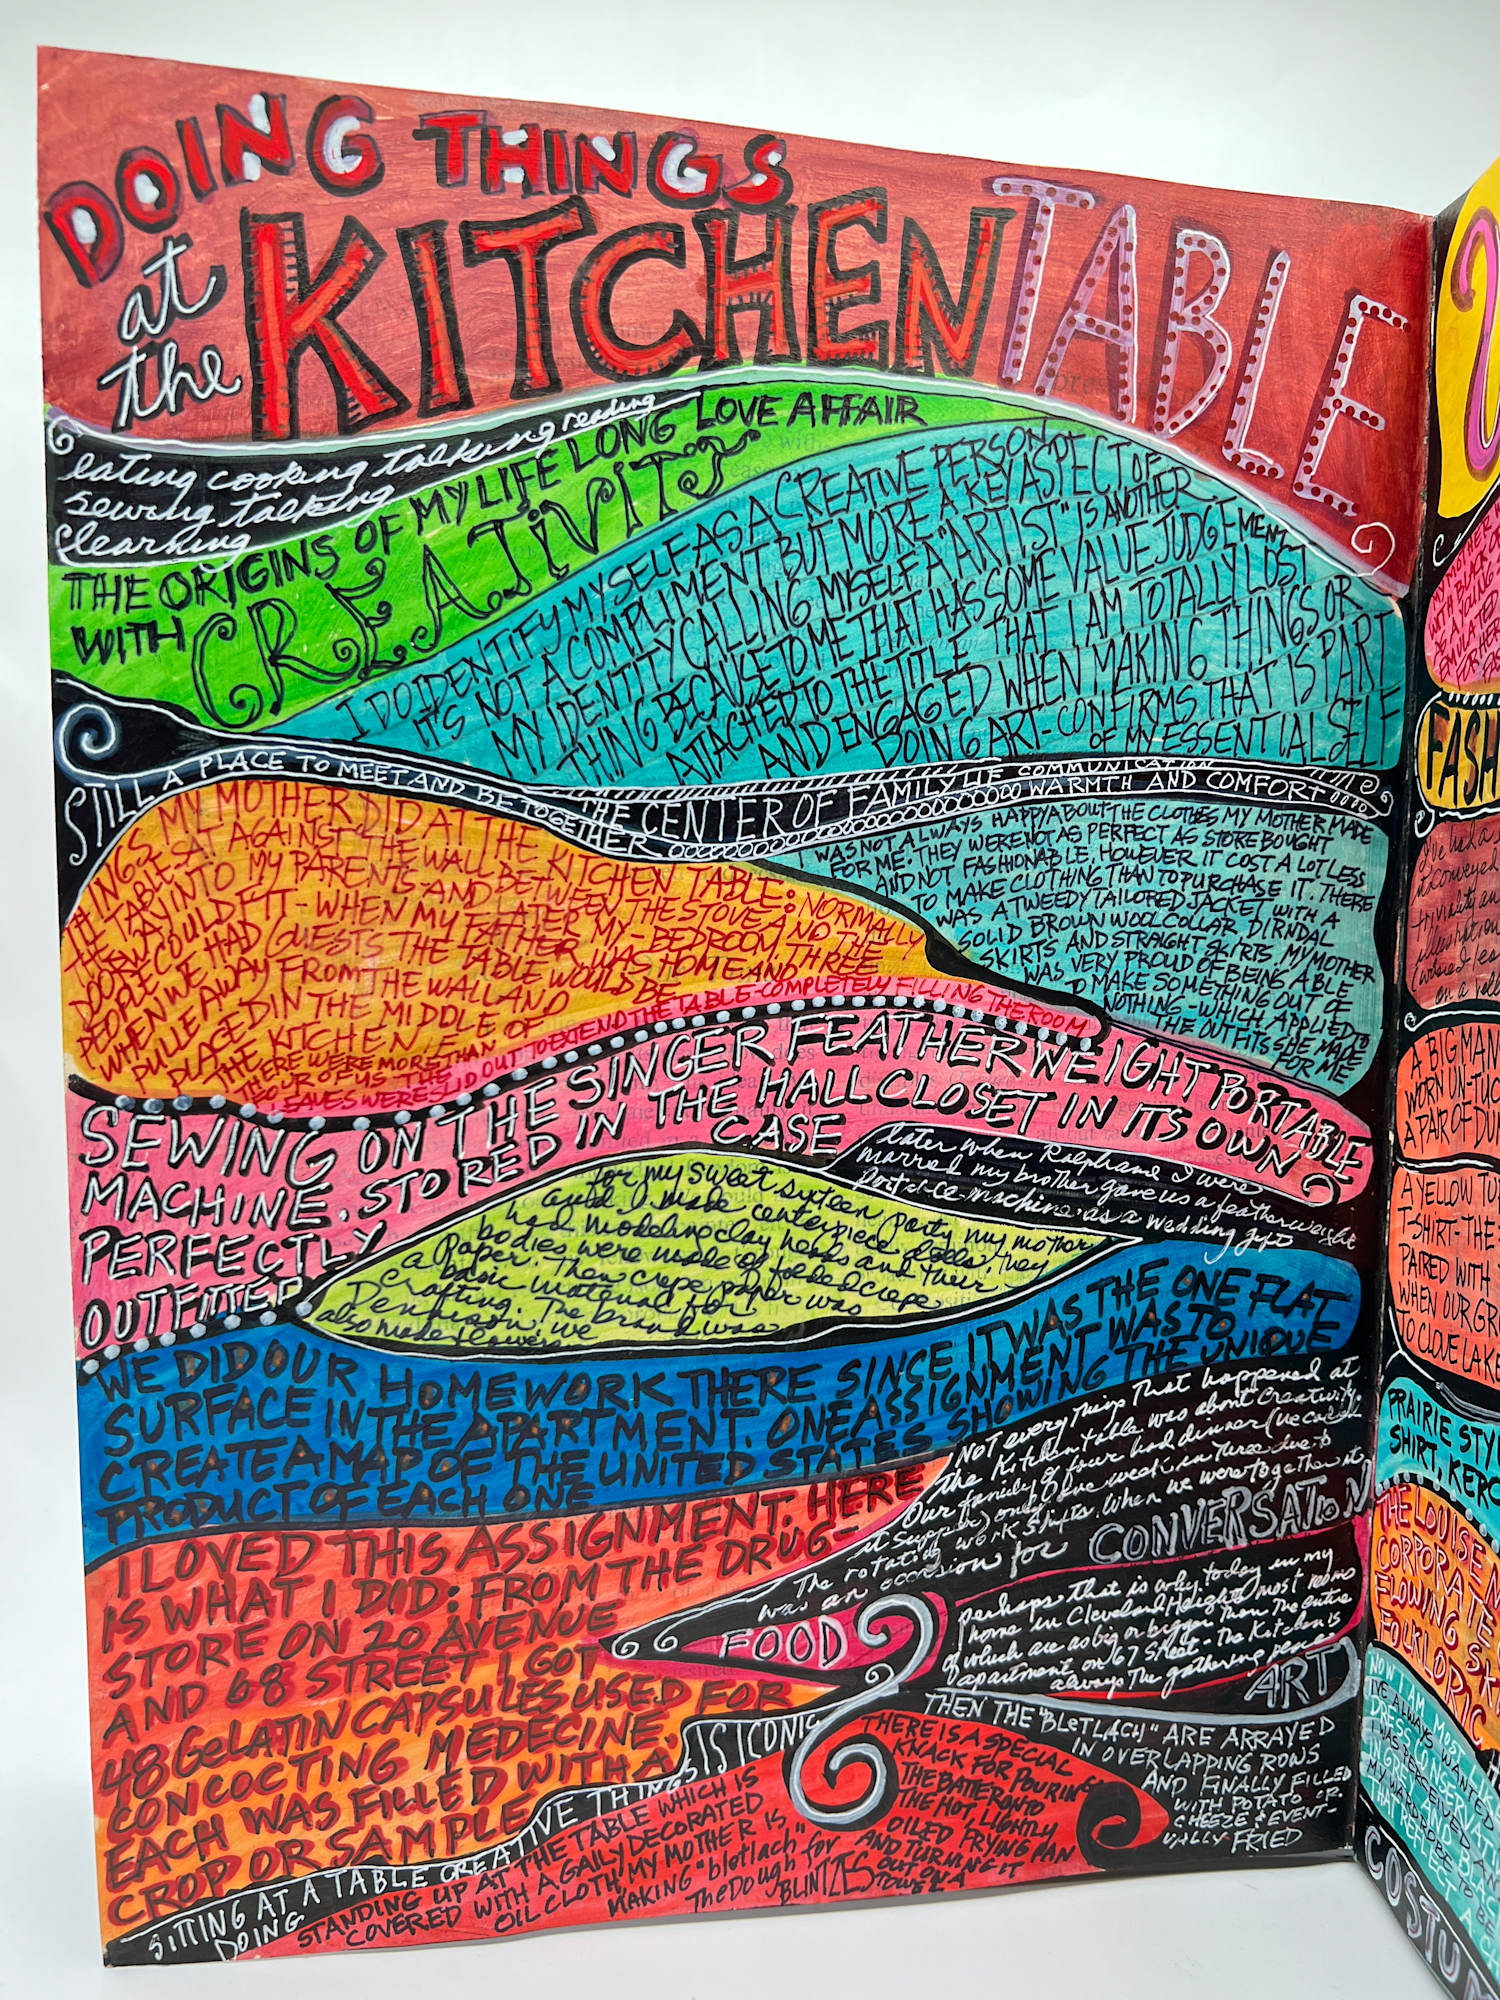 DOING THINGS
at
the
KITCHEN TABLE
eating cooking talking reading
sewing talking
learning
THE ORIGINS OF MY LIFE LONG LOVE AFFAIR
WITH CREATIVITY
I DO IDENTIFY MYSELF AS A CREATIVE PERSON
IT'S NOT A COMPLIMENT BUT MORE A KEY ASPECT OF
MY IDENTITY CALLING MYSELF A "ARTIST" IS ANOTHER
THING BECAUSE TO ME THAT HAS SOME VALUE JUDGEMENT
ATTACHED TO THE TITLE THAT I AM TOTALLY LOST
AND ENGAGED WHEN MAKING THINGS OR
DOING ART-CONFIRMS THAT IS PART
OF MY ESSENTIAL SELF
STILL A PLACE TO MEET AND BE TOGETHER
THE CENTER OF FAMILY LIFE COMMUNICATION
WARMTH AND COMFORT
THINGS MY MOTHER DID AT THE KITCHEN TABLE: NORMALLY
THE TABLE SAT AGAINST THE WALL BETWEEN THE STOVE AND THE
DOORWAY INTO MY PARENTS-AND MY-BEDROOM. THREE
PEOPLE COULD FIT-WHEN MY FATHER WAS HOME AND
WHEN WE HAD GUESTS THE TABLE WOULD BE
PULLED AWAY FROM THE WALL AND
PLACED IN THE MIDDLE OF
THE KITCHEN. IF
THERE WERE MORE THAN
FOUR OF US THE
LEAVES WERE SLID OUT TO EXTEND THE TABLE-COMPLETELY FILLING THE ROOM
I WAS NOT ALWAYS HAPPY ABOUT THE CLOTHES MY MOTHER MADE
FOR ME. THEY WERE NOT AS PERFECT AS STORE BOUGHT
AND NOT FASHIONABLE. HOWEVER IT COST A LOT LESS
TO MAKE CLOTHING THAN TO PURCHASE IT. THERE
WAS A TWEEDY TAILORED JACKET WITH A
SOLID BROWN WOOL COLLAR DIRNDAL
SKIRTS AND STRAIGHT SKIRTS. MY MOTHER
WAS VERY PROUD OF BEING ABLE
TO MAKE SOMETHING OUT OF
NOTHING-WHICH APPLIED TO
THE OUTFITS SHE MADE
FOR ME
SEWING ON THE SINGER FEATHERWEIGHT PORTABLE
MACHINE. STORED IN THE HALL CLOSET IN ITS OWN
PERFECTLY
OUTFITTED
CASE
later when Ralph and I were
married my brother gave us a featherweight
portable machine as a wedding gift
for my sweet sixteen party my mother
and I made centerpiece dolls they
had modeling clay heads and their
bodies were made of folded crepe
paper. Then crepe paper was
a basic material for
crafting. The brand was
Dennison. We
also made flowers
WE DID OUR HOMEWORK THERE SINCE IT WAS THE ONE FLAT
SURFACE IN THE APARTMENT. ONE ASSIGNMENT WAS TO
CREATE A MAP OF THE UNITED STATES SHOWING THE UNIQUE
PRODUCT OF EACH ONE
I LOVED THIS ASSIGNMENT. HERE
IS WHAT I DID: FROM THE DRUG-
STORE ON 20 AVENUE
AND 68 STREET I GOT
48 GELATIN CAPSULES USED FOR
CONCOCTING MEDECINE.
EACH WAS FILLED WITH A
CROP OR SAMPLE
Not everything that happened at
the Kitchen table was about Creativity.
Our family of four had dinner (we called
it supper) only one week in three due to
the rotating work shifts. When we were together it
was an occasion for CONVERSATION
FOOD
perhaps that is why today in my
home in Cleveland Heights most rooms
of which are as big or bigger than the entire
apartment on 67 Street-the Kitchen is
always the gathering place
ART
SITTING AT A TABLE CREATIVE THINGS IS ICONIC
DOING
STANDING UP AT THE TABLE WHICH IS
COVERED WITH A GAILY DECORATED
OIL CLOTH, MY MOTHER IS
MAKING "bletlach"
The Dough for
BLINTZES
THERE IS A SPECIAL
KNACK FOR POURING
THE BATTER ONTO
THE HOT, LIGHTLY
OILED FRYING PAN
AND TURNING IT
OUT ON A
TOWEL
THEN THE "BLETLACH" ARE ARRAYED
IN OVERLAPPING ROWS
AND FINALLY FILLED
WITH POTATO OR
CHEESE & EVENT-
UALLY FRIED
FASH
I've had a
conveyed
A BIG MAN
WORN UN-TUC
A PAIR OF DU
A YELLOW TU
T-SHIRT-THE
PAIRED WITH
WHEN OUR GR
TO CLOVE LAKE
PRAIRIE STY
SHIRT, KERC
THE LOUISE N
CORPORATE
FLOWING SK
FOLKLORIC
NOW I AM MOST
I'VE ALWAYS WANTED
I WAS PERCEIVED
MY WARDROBE
COSTUM